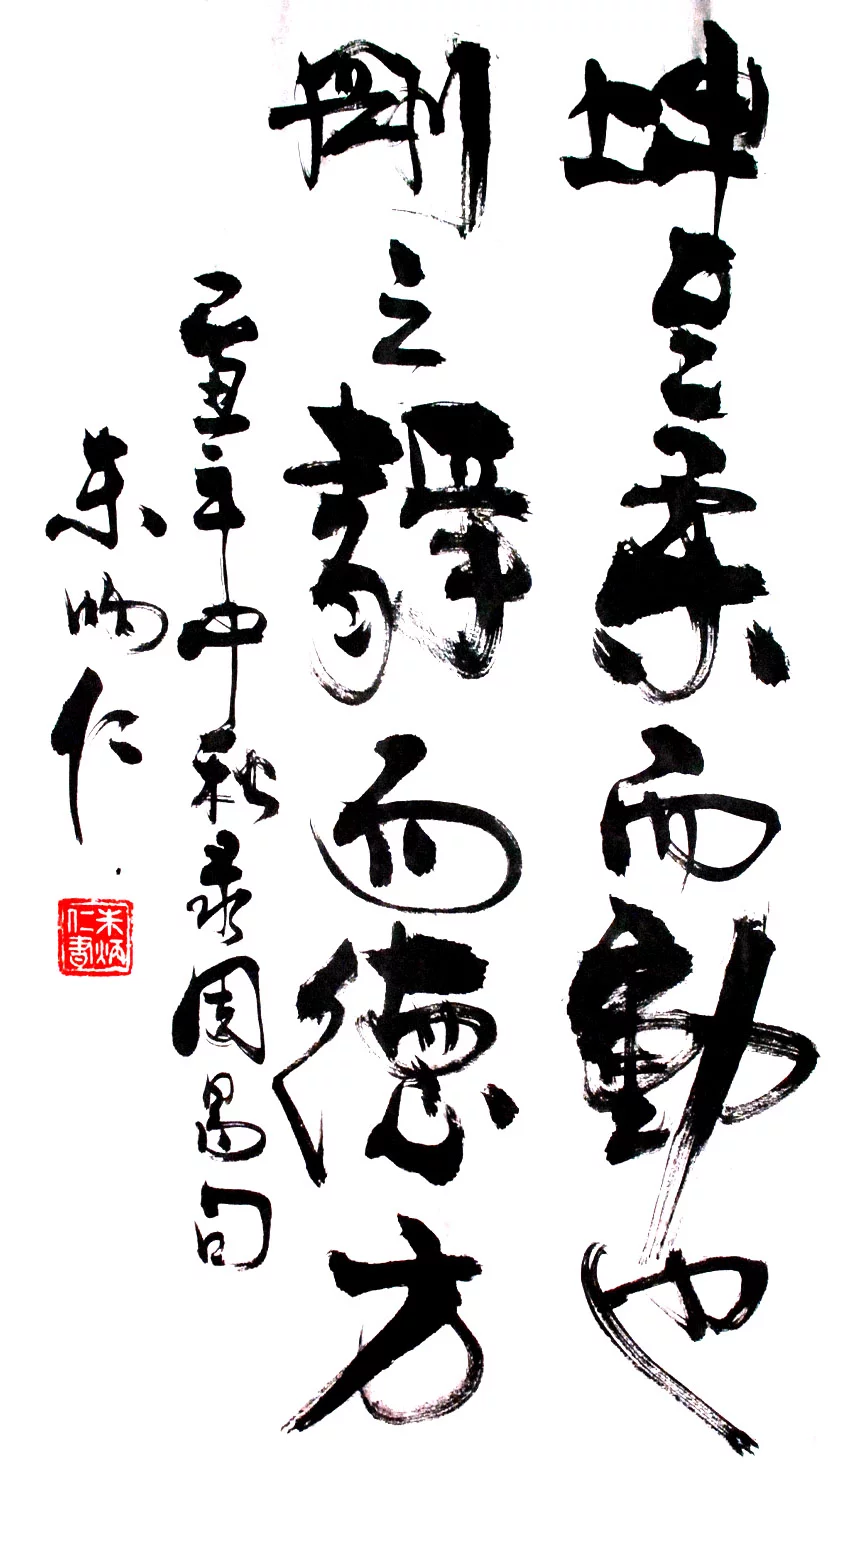 坤至柔而動也
剛之靜而德方
己丑年中秋录周易句
朱炳仁
朱炳仁書